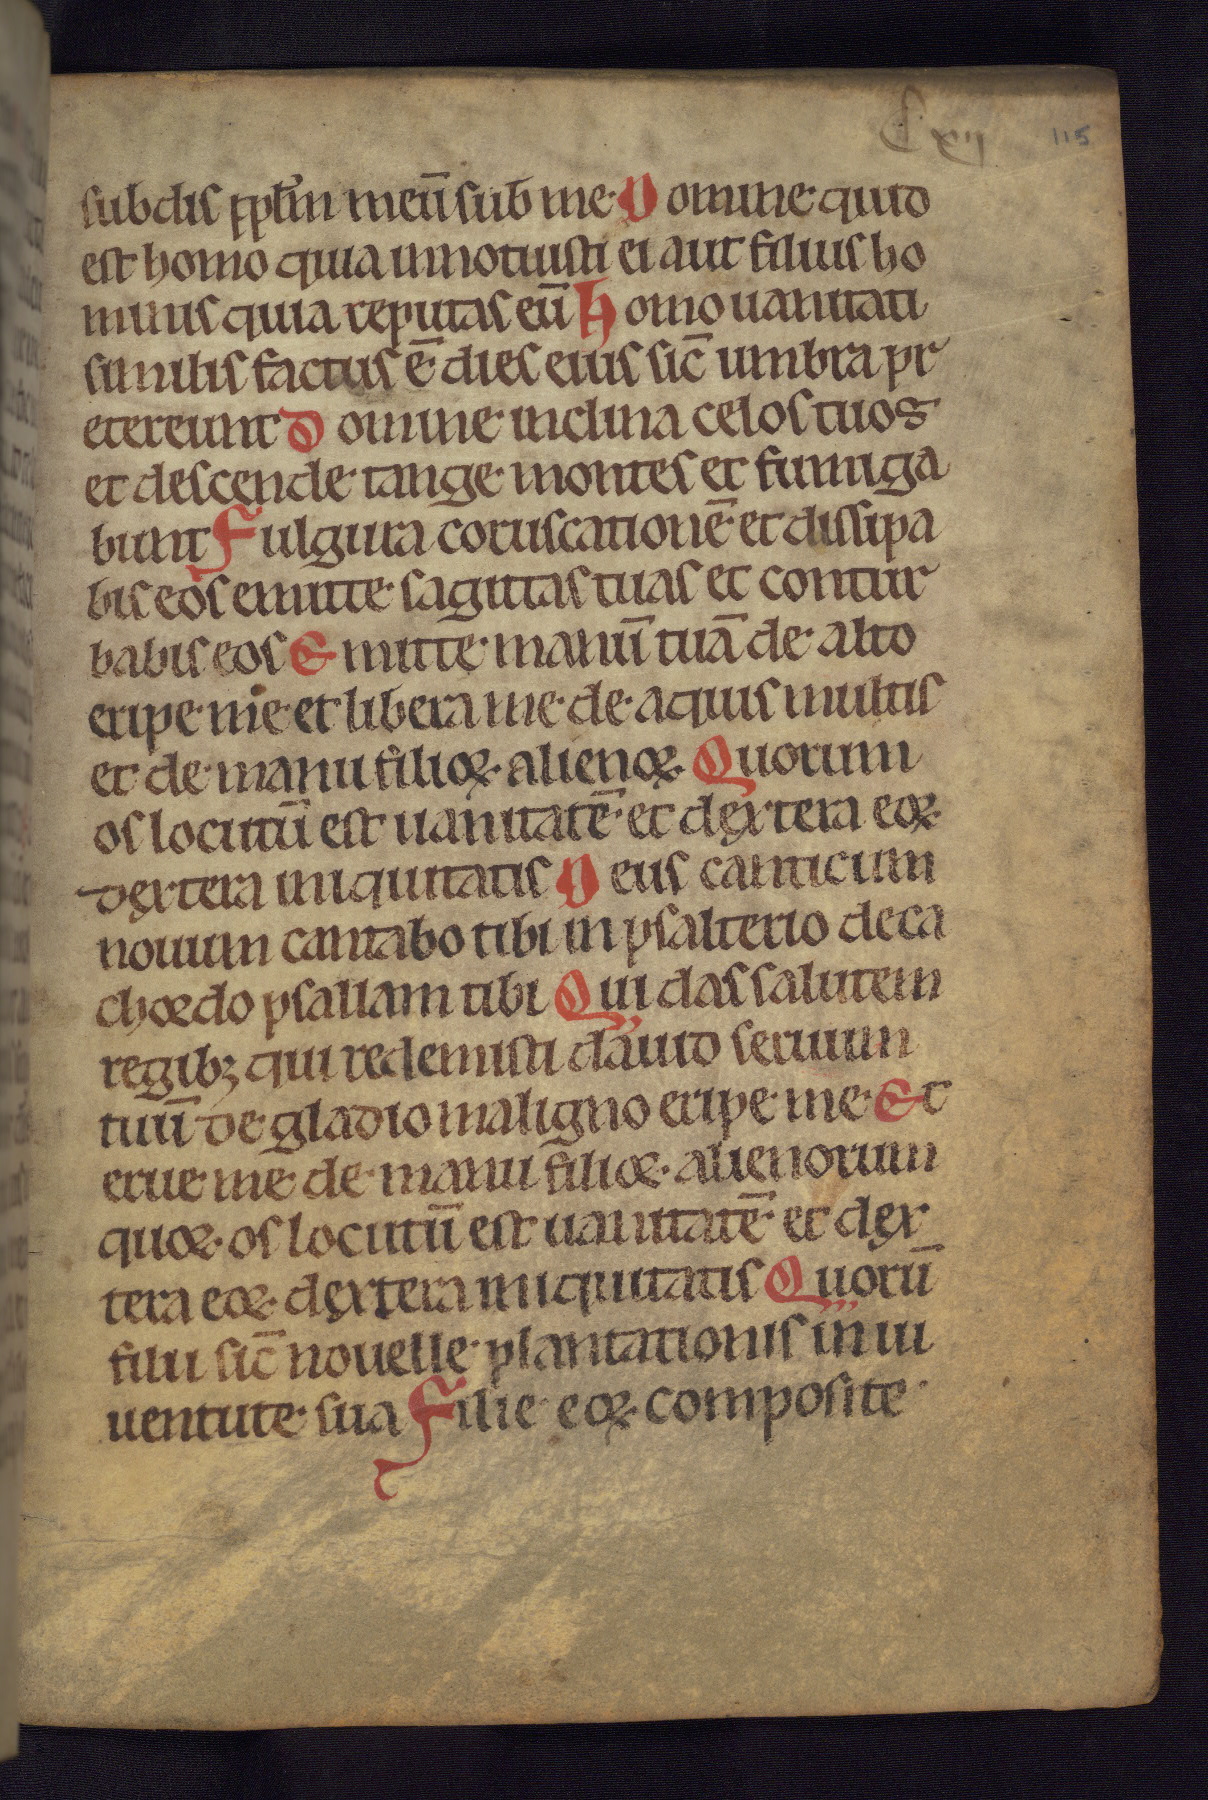 C xii 115
subdis pplm̄ meū sub me Domine quid
est homo quia innotuisti ei aut filius ho
minis quia reputas eū Homo uanitati
similis factus ē dies eius sic̄ umbra pr
etereunt Domine inclina celos tuos
et descende tange montes et fumiga
bunt Fulgura coruscationē et dissipa
bis eos emitte sagittas tuas et contur
babis eos Emitte manū tuā de alto
eripe me et libera me de aquis multis
et de manu filioꝝ alienoꝝ Quorum
os locutū est uanitatē et dextera eoꝝ
dextera iniquitatis Deus canticum
nouum cantabo tibi in psalterio deca
chordo psallam tibi Qui das salutem
regibꝫ qui redemisti dauid seruum
tuū de gladio maligno eripe me Et
erue me de manu filioꝝ alienorum
quoꝝ os locutū est uanitatē et dex
tera eoꝝ dextera iniquitatis Quorū
filii sic̄ nouelle plantationis in iu
uentute sua Filie eoꝝ composite